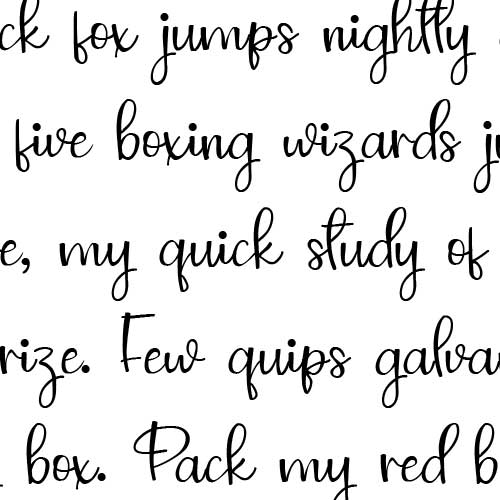 ck fox jumps nightly
five boxing wizards ju
e, my quick study of
rize. Few quips galva
box. Pack my red b